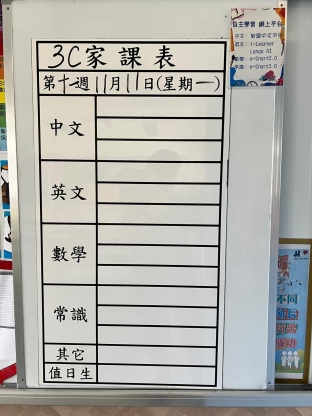 3C家課表
第十一週 11月11日(星期一)
中文
英文
數學
常識
其它
值日生
自主學習 網上平台
中文:
英文: i-Learner
數學: e-Smart2.0
常識: e-Smart2.0
不同